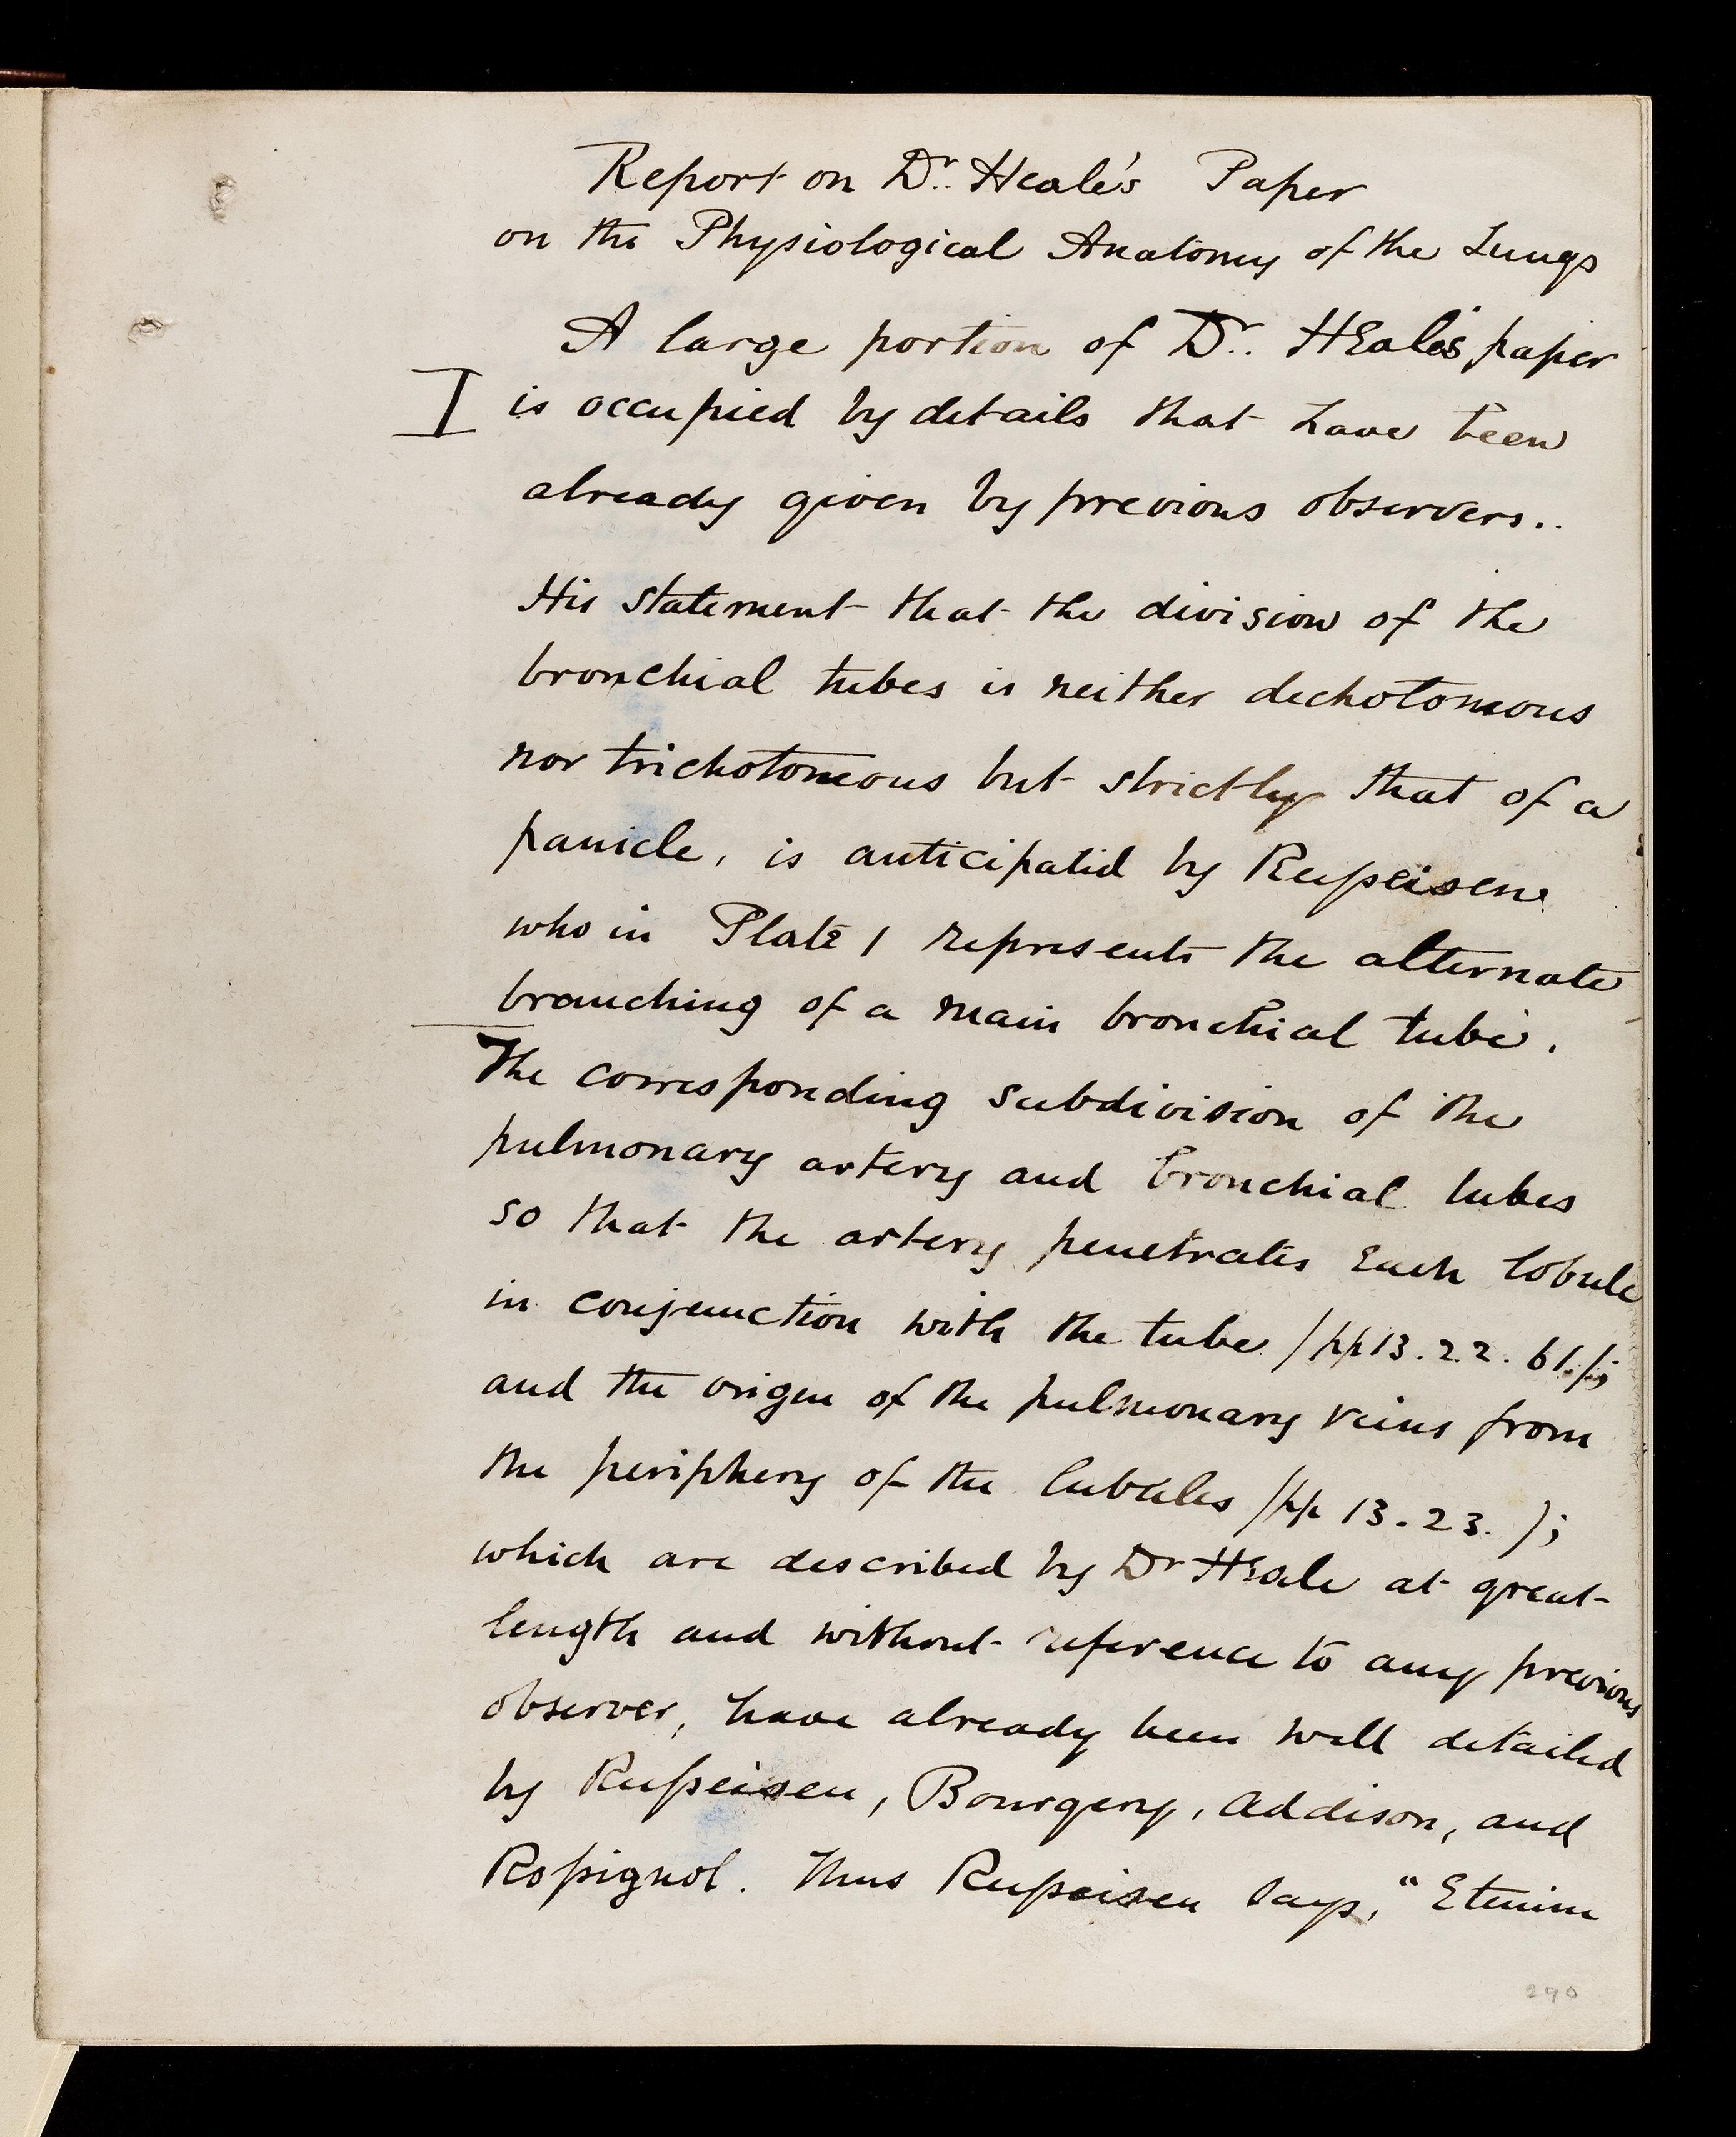 Report on Dr. Heale's Paper
on the Physiological Anatomy of the Lungs
A large portion of Dr. HEale's paper
I is occupied by details that have been
already given by previous observers..
His statement that the division of the
bronchial tubes is neither dichotomous
nor trichotomous but strictly that of a
panicle, is anticipated by Reisseisen
who in Plate 1 represents the alternate
branching of a main bronchial tube.
The corresponding subdivision of the
pulmonary artery and bronchial tubes
so that the artery penetrates Each lobule
in conjunction with the tube /pp 13.22.61./;
and the origin of the pulmonary veins from
the periphery of the lubules /pp 13.23. /;
which are described by Dr HEale at great
length and without reference to any previous
observer, have already been well detailed
by Reisseisen, Bourgery, Addison, and
Rossignol. Thus Reisseisen says, "Etenim
290